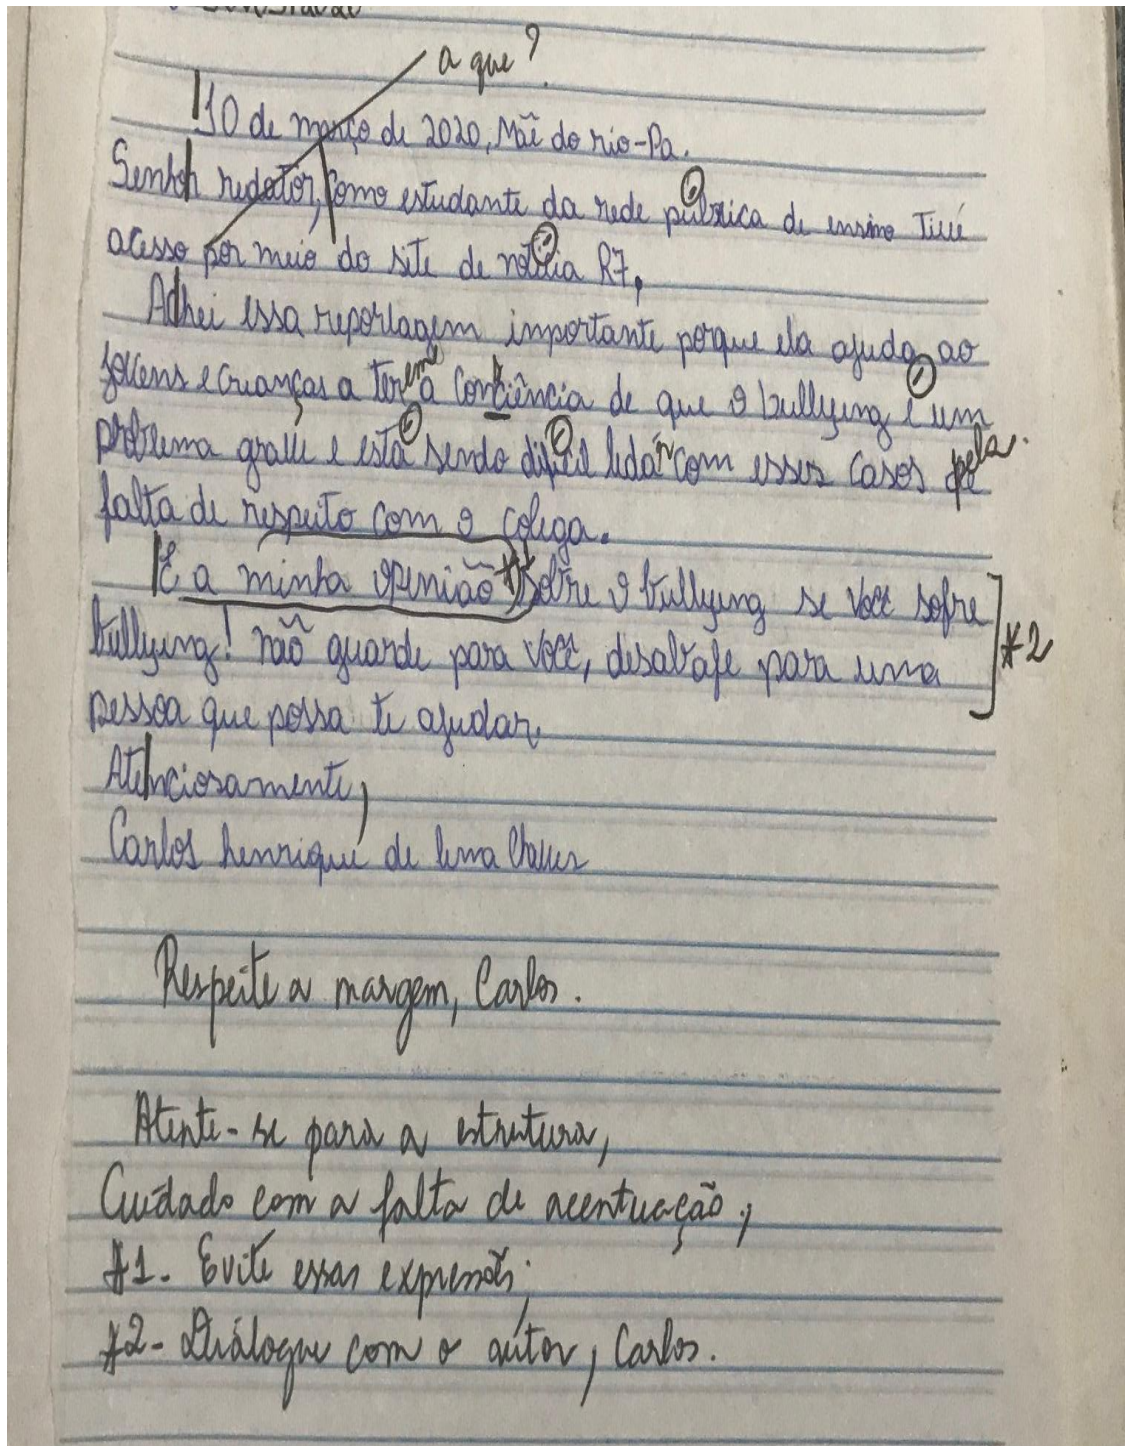 a que?
10 de março de 2020, Mãe do rio-Pa.
Senhor redator, como estudante da rede pública de ensino Tive
acesso por meio do site de notícia R7,
Achei essa reportagem importante porque ela ajuda ao
jovens e crianças a terem a consciência de que o bullying é um
problema grave e está sendo difícil lidar com esses casos pela
falta de respeito com o colega.
E a minha openião *1 sobre o bullying se você sofre
bullying! não guarde para você, desabafe para uma *2
pessoa que possa te ajudar.
Atenciosamente,
Carlos henrique de lima Chaves
Respeite a margem, Carlos.
Atente-se para a estrutura,
Cuidado com a falta de acentuação;
*1- Evite essas expressões;
*2- Diálogue com o autor, Carlos.